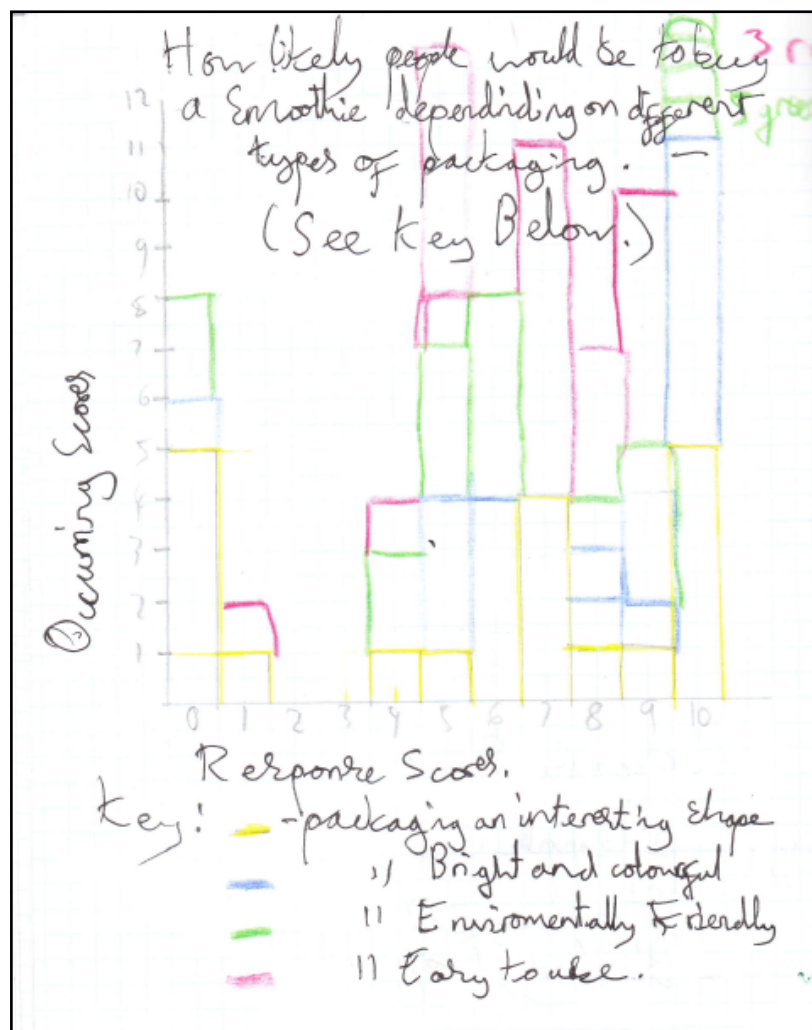 How likely people would be to buy
a Smoothie dependiding on different
types of packaging.
(See Key Below.)
3
5 gree
12
11
10
9
8
7
6
5
4
3
2
1
Occurring Scores
0 1 2 3 4 5 6 7 8 9 10
Response Scores.
Key:
- packaging an interesting shape
" Bright and colourful
" Enviromentally Friendly
" Easy to use.